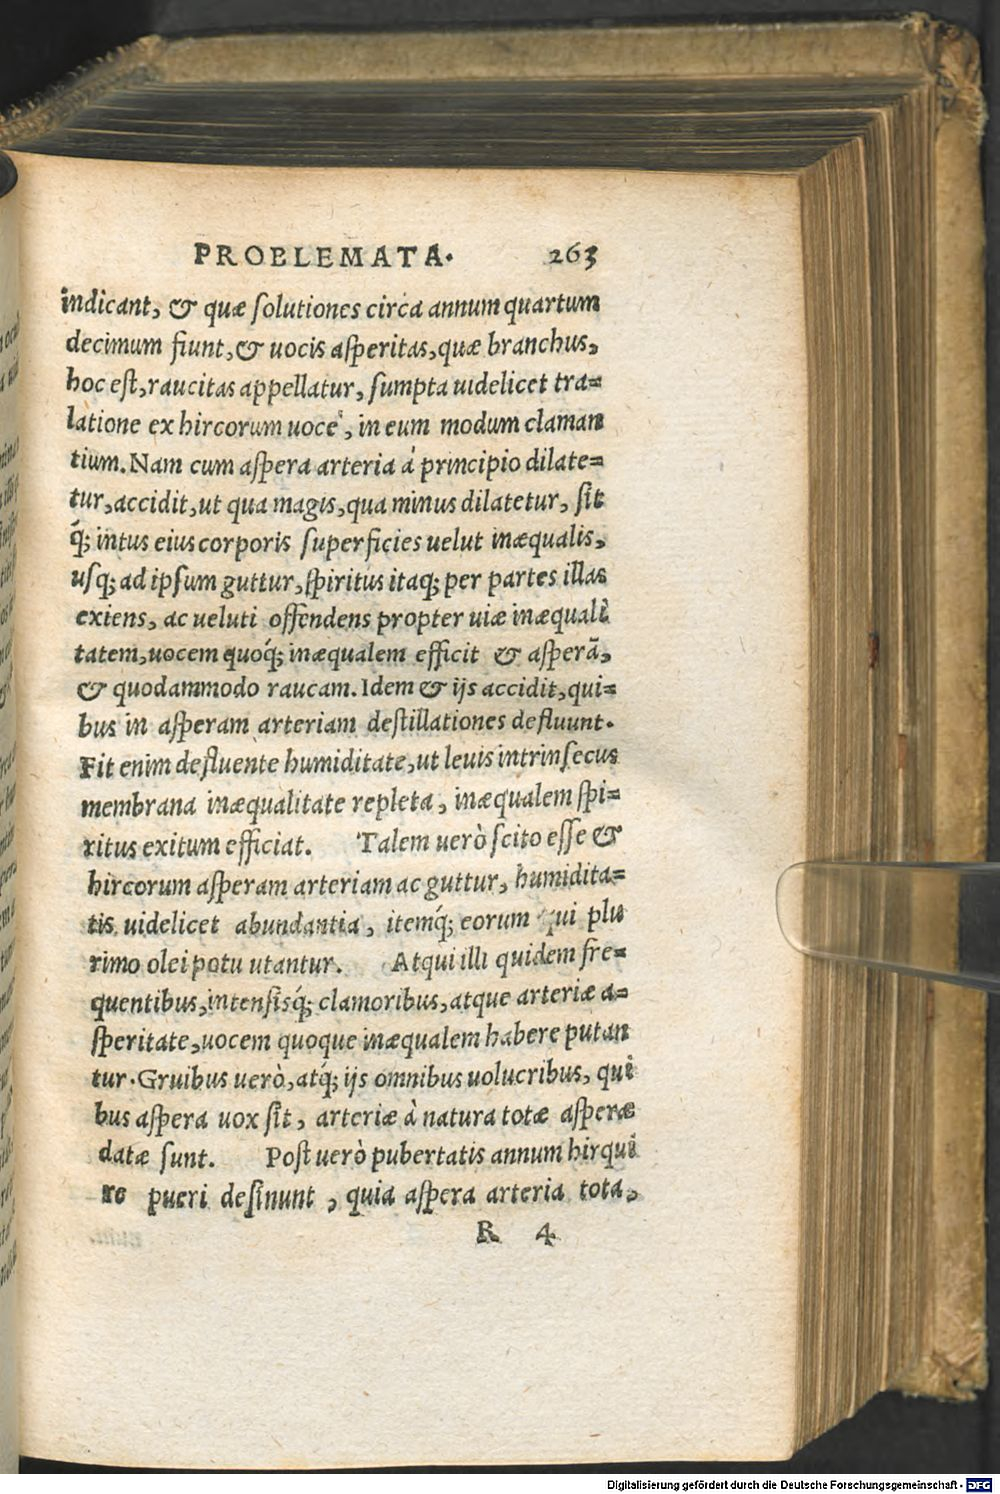 PROBLEMATA. 263
indicant, & quæ ſolutiones circa annum quartum
decimum fiunt, & uocis aſperitas, quæ branchus,
hoc eſt, raucitas appellatur, ſumpta uidelicet tra=
latione ex hircorum uoce, in eum modum claman
tium. Nam cum aſpera arteria à principio dilate=
tur, accidit, ut qua magis, qua minus dilatetur, ſit
q́; intus eius corporis ſuperficies uelut inæqualis,
uſq; ad ipſum guttur, ſpiritus itaq; per partes illas
exiens, ac ueluti offendens propter uiæ inæquali
tatem, uocem quoq́; inæqualem efficit & aſperã,
& quodammodo raucam. Idem & ijs accidit, qui=
bus in aſperam arteriam deſtillationes defluunt.
Fit enim defluente humiditate, ut leuis intrinſecus
membrana inæqualitate repleta, inæqualem ſpi=
ritus exitum efficiat. Talem uerò ſcito eſſe &
hircorum aſperam arteriam ac guttur, humidita=
tis uidelicet abundantia, itemq́; eorum qui plu
rimo olei potu utantur. Atqui illi quidem fre=
quentibus, intenſisq́; clamoribus, atque arteriæ a=
ſperitate, uocem quoque inæqualem habere putan
tur. Gruibus uerò, atq́; ijs omnibus uolucribus, qui
bus aſpera uox ſit, arteriæ à natura totæ aſperæ
datæ ſunt. Poſt uerò pubertatis annum hirqui
re pueri deſinunt, quia aſpera arteria tota,
R 4
Digitalisierung gefördert durch die Deutsche Forschungsgemeinschaft - DFG